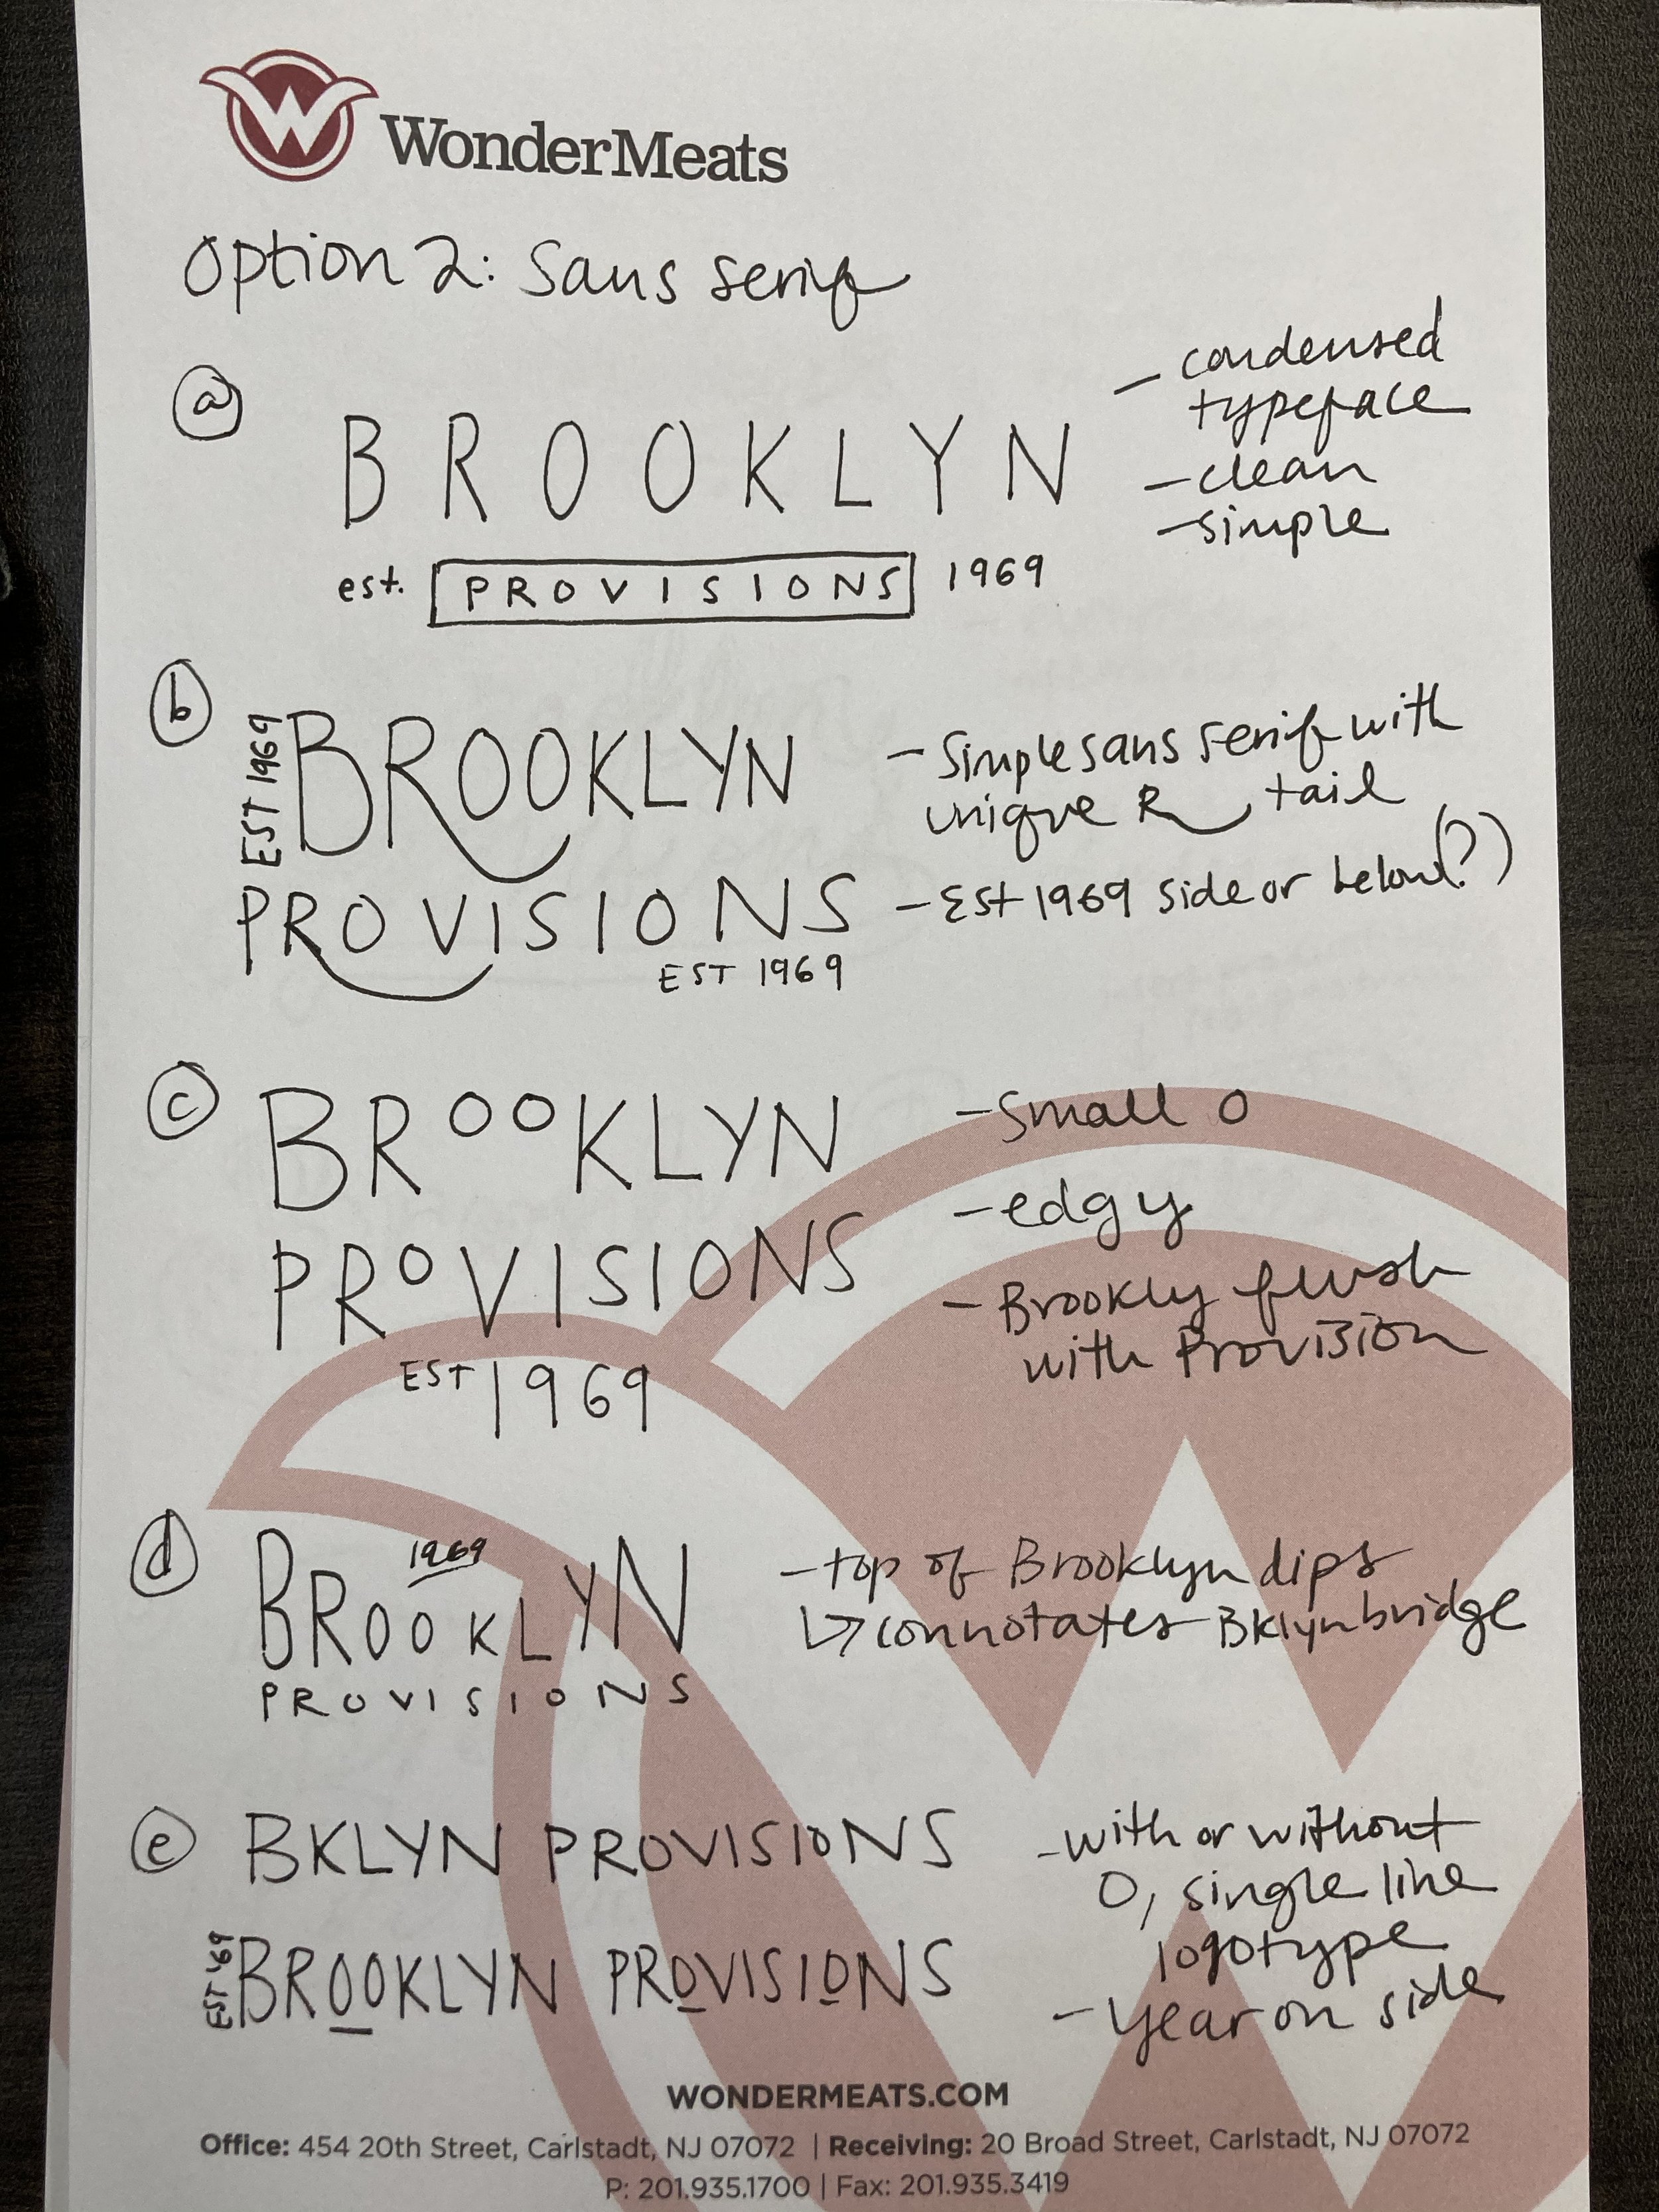 W
WonderMeats
Option 2: Sans serif
a
BROOKLYN
est. PROVISIONS 1969
- condensed
typeface
- clean
- simple
b
EST 1969
BROOKLYN
PROVISIONS
EST 1969
- Simple sans serif with
unique R tail
- Est 1969 side or below(?)
c
BROOKLYN
PROVISIONS
EST 1969
- Small o
- edgy
- Brookly flush
with Provision
d
1969
BROOKLYN
PROVISIONS
- top of Brooklyn dips
↳ connotates Bklyn bridge
e
BKLYN PROVISIONS
EST '69
BROOKLYN PROVISIONS
- with or without
O, single line
logotype
- year on side
WONDERMEATS.COM
Office: 454 20th Street, Carlstadt, NJ 07072 | Receiving: 20 Broad Street, Carlstadt, NJ 07072
P: 201.935.1700 | Fax: 201.935.3419